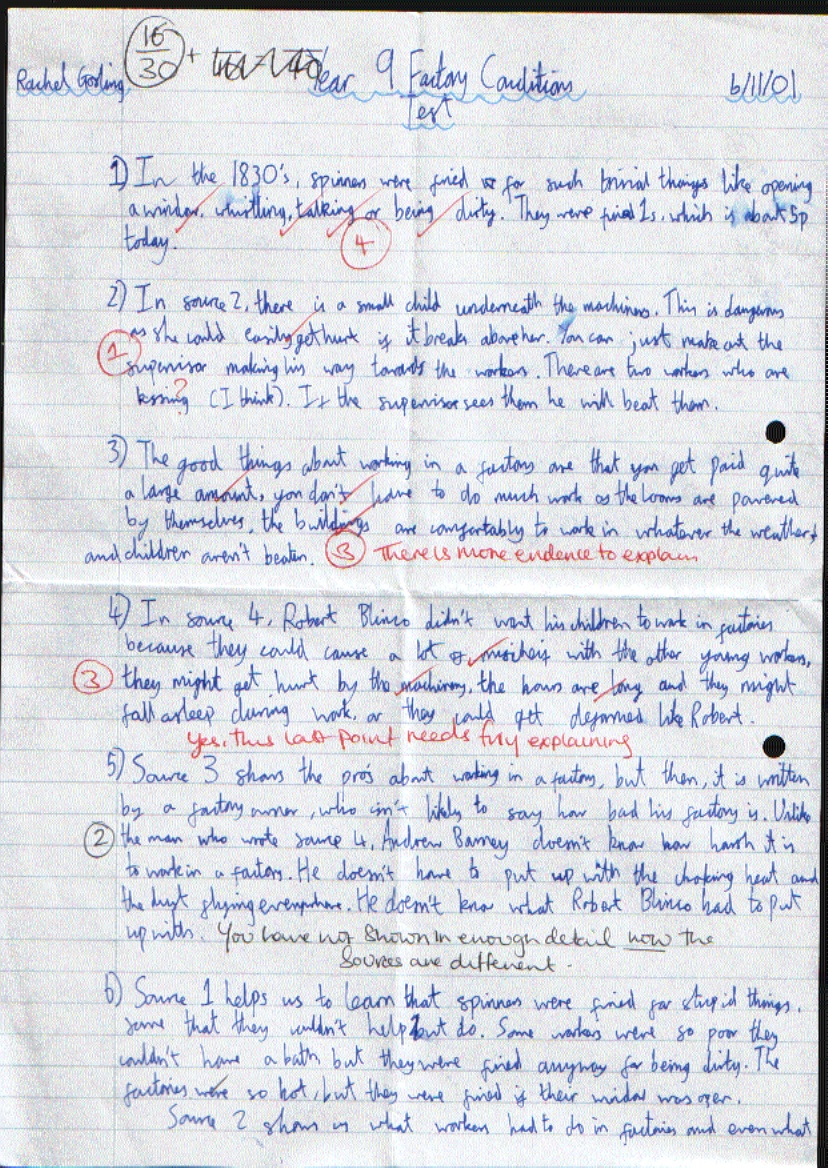 16/30 +
Rachel Gosling Year 9 Factory Conditions 6/11/01
Test
1) In the 1830's, spinners were fined for such trivial things like opening
a window, whistling, talking or being dirty. They were fined 1s, which is about 5p
today. 4
2) In source 2, there is a small child underneath the machines. This is dangerous
as she could easily get hurt if it breaks above her. You can just make out the
1 supervisor making his way towards the workers. There are two workers who are
kissing? (I think). If the supervisor sees them he will beat them.
3) The good things about working in a factory are that you get paid quite
a large amount, you don't have to do much work as the looms are powered
by themselves, the buildings are comfortably to work in whatever the weather
and children aren't beaten. 3 There is more evidence to explain
4) In source 4, Robert Blinco didn't want his children to work in factories
because they could cause a lot of mischeif with the other young workers,
3 they might get hurt by the machinery, the hours are long and they might
fall asleep during work, or they could get deformed like Robert.
yes, this last point needs fully explaining
5) Source 3 shows the pro's about working in a factory, but then, it is written
by a factory owner, who isn't likely to say how bad his factory is. Unlike
2 the man who wrote source 4, Andrew Barney doesn't know how harsh it is
to work in a factory. He doesn't have to put up with the choking heat and
the dust flying everywhere. He doesn't know what Robert Blinco had to put
up with. You have not shown in enough detail how the
sources are different.
6) Source 1 helps us to learn that spinners were fined for stupid things,
some that they couldn't help but do. Some workers were so poor they
couldn't have a bath, but they were fined anyway for being dirty. The
factories were so hot, but they were fined if their window was open.
Source 2 shows us what workers had to do in factories and even what